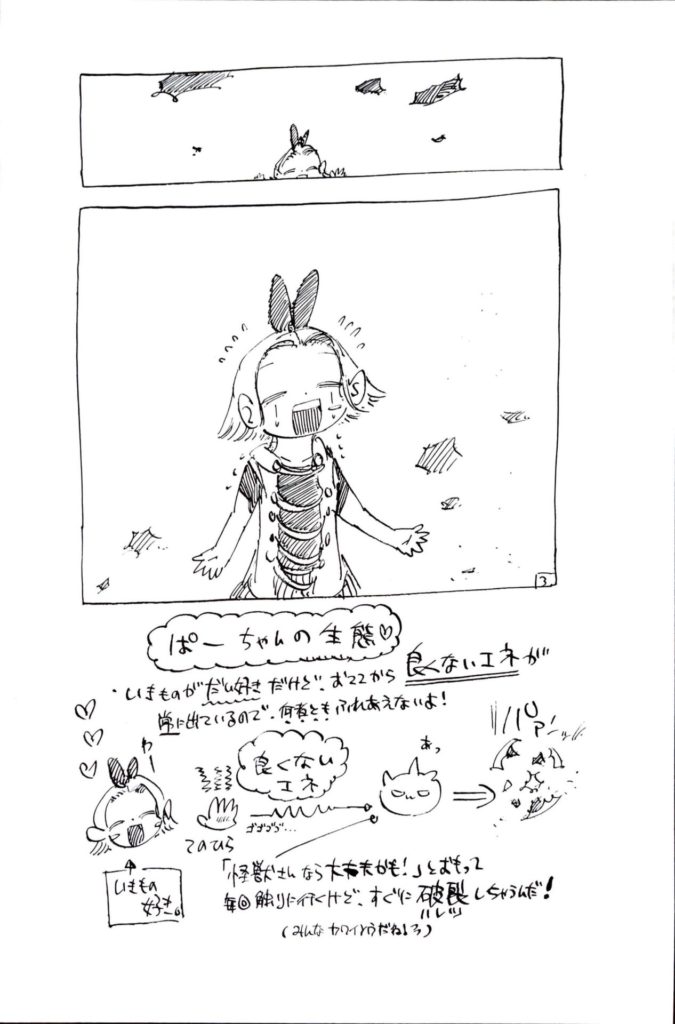 3
ぱーちゃんの生態♡
・いきものがだい好きだけど、おててから良くないエネが
常に出ているので、何者ともふれあえないよ!
わー
良くない
エネ
あっ
パァンッ
ゴゴゴゴ…
てのひら
いきもの
好き。
「怪獣さんなら大丈夫かも!」とおもって
毎回触りに行くけど、すぐに破裂しちゃうんだ!
ハレツ
(みんなカワイソウだねぇ)